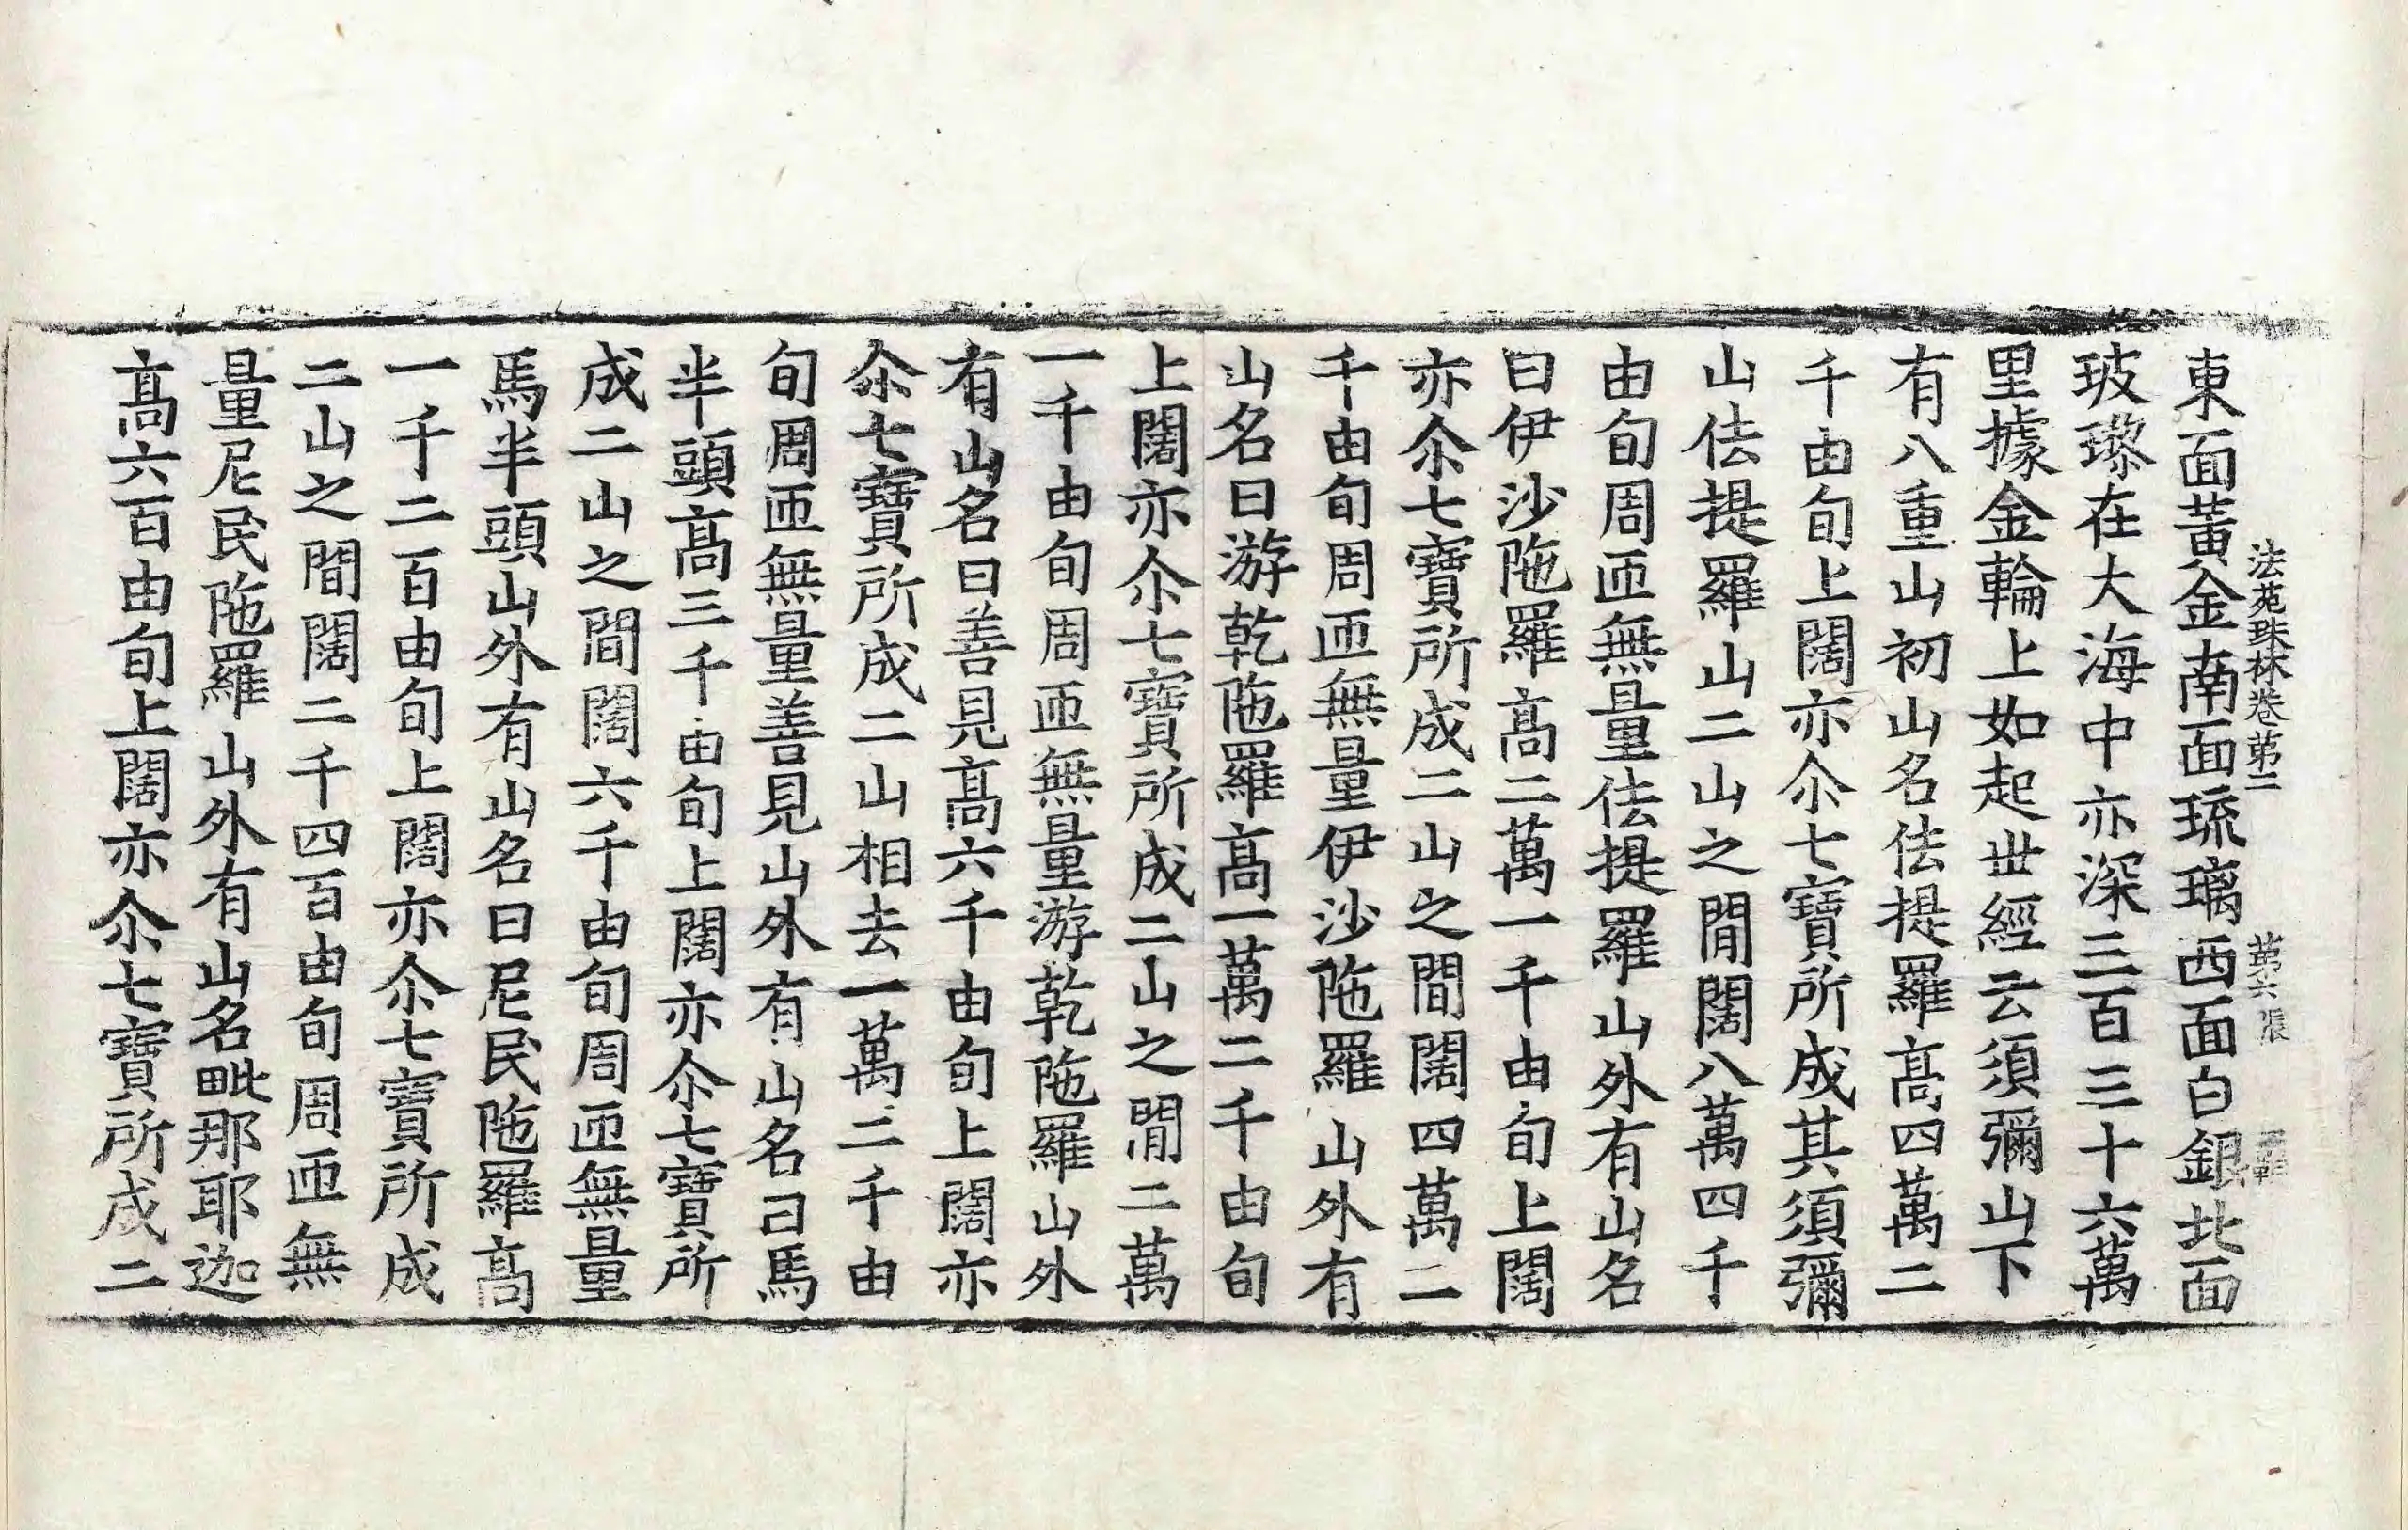 法苑珠林卷第二 第六張
東面黃金南面琉璃西面白銀北面
玻瓈在大海中亦深三百三十六萬
里據金輪上如起世經云須彌山下
有八重山初山名佉提羅高四萬二
千由旬上闊亦尒七寶所成其須彌
山佉提羅山二山之閒闊八萬四千
由旬周匝無量佉提羅山外有山名
曰伊沙陁羅高二萬一千由旬上闊
亦尒七寶所成二山之閒闊四萬二
千由旬周匝無量伊沙陁羅山外有
山名曰游乾陁羅高一萬二千由旬
上闊亦尒七寶所成二山之閒二萬
一千由旬周匝無量游乾陁羅山外
有山名曰善見高六千由旬上闊亦
尒七寶所成二山相去一萬二千由
旬周匝無量善見山外有山名曰馬
半頭高三千由旬上闊亦尒七寶所
成二山之閒闊六千由旬周匝無量
馬半頭山外有山名曰尼民陁羅高
一千二百由旬上闊亦尒七寶所成
二山之閒闊二千四百由旬周匝無
量尼民陁羅山外有山名毗那耶迦
高六百由旬上闊亦尒七寶所成二